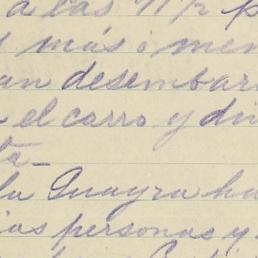 a las 11 1/2 p
y más ó men
an desembar
el carro y di
ta_
la Guayra ha
ias personas y